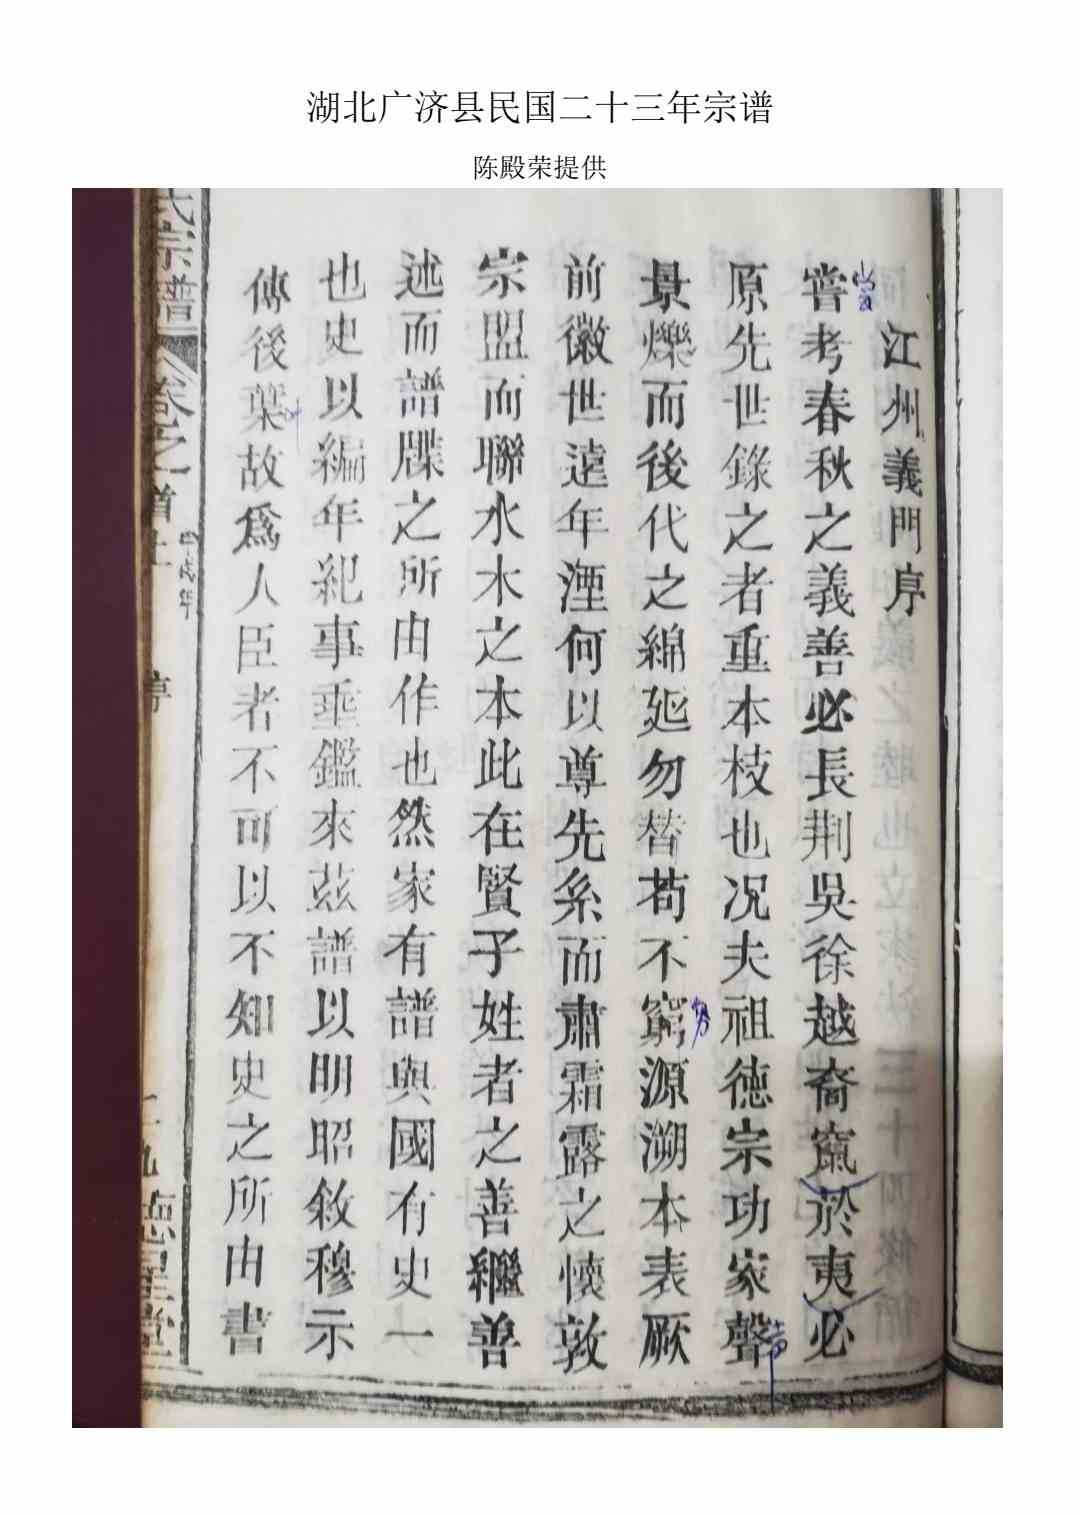 湖北广济县民国二十三年宗谱
陈殿荣提供
江州義門序
嘗考春秋之義善必長荆吳徐越裔竄於夷必
原先世錄之者重本枝也况夫祖徳宗功家聲
景爍而後代之綿延勿替苟不窮源溯本表厥
前徽世遠年湮何以尊先系而肅霜露之懷敦
宗盟而聯水木之本此在賢子姓者之善繼善
述而譜牒之所由作也然家有譜與國有史一
也史以編年紀事垂鑑來茲譜以明昭敘穆示
傳後葉故爲人臣者不可以不知史之所由書
氏宗譜
卷之首上
序
德星堂